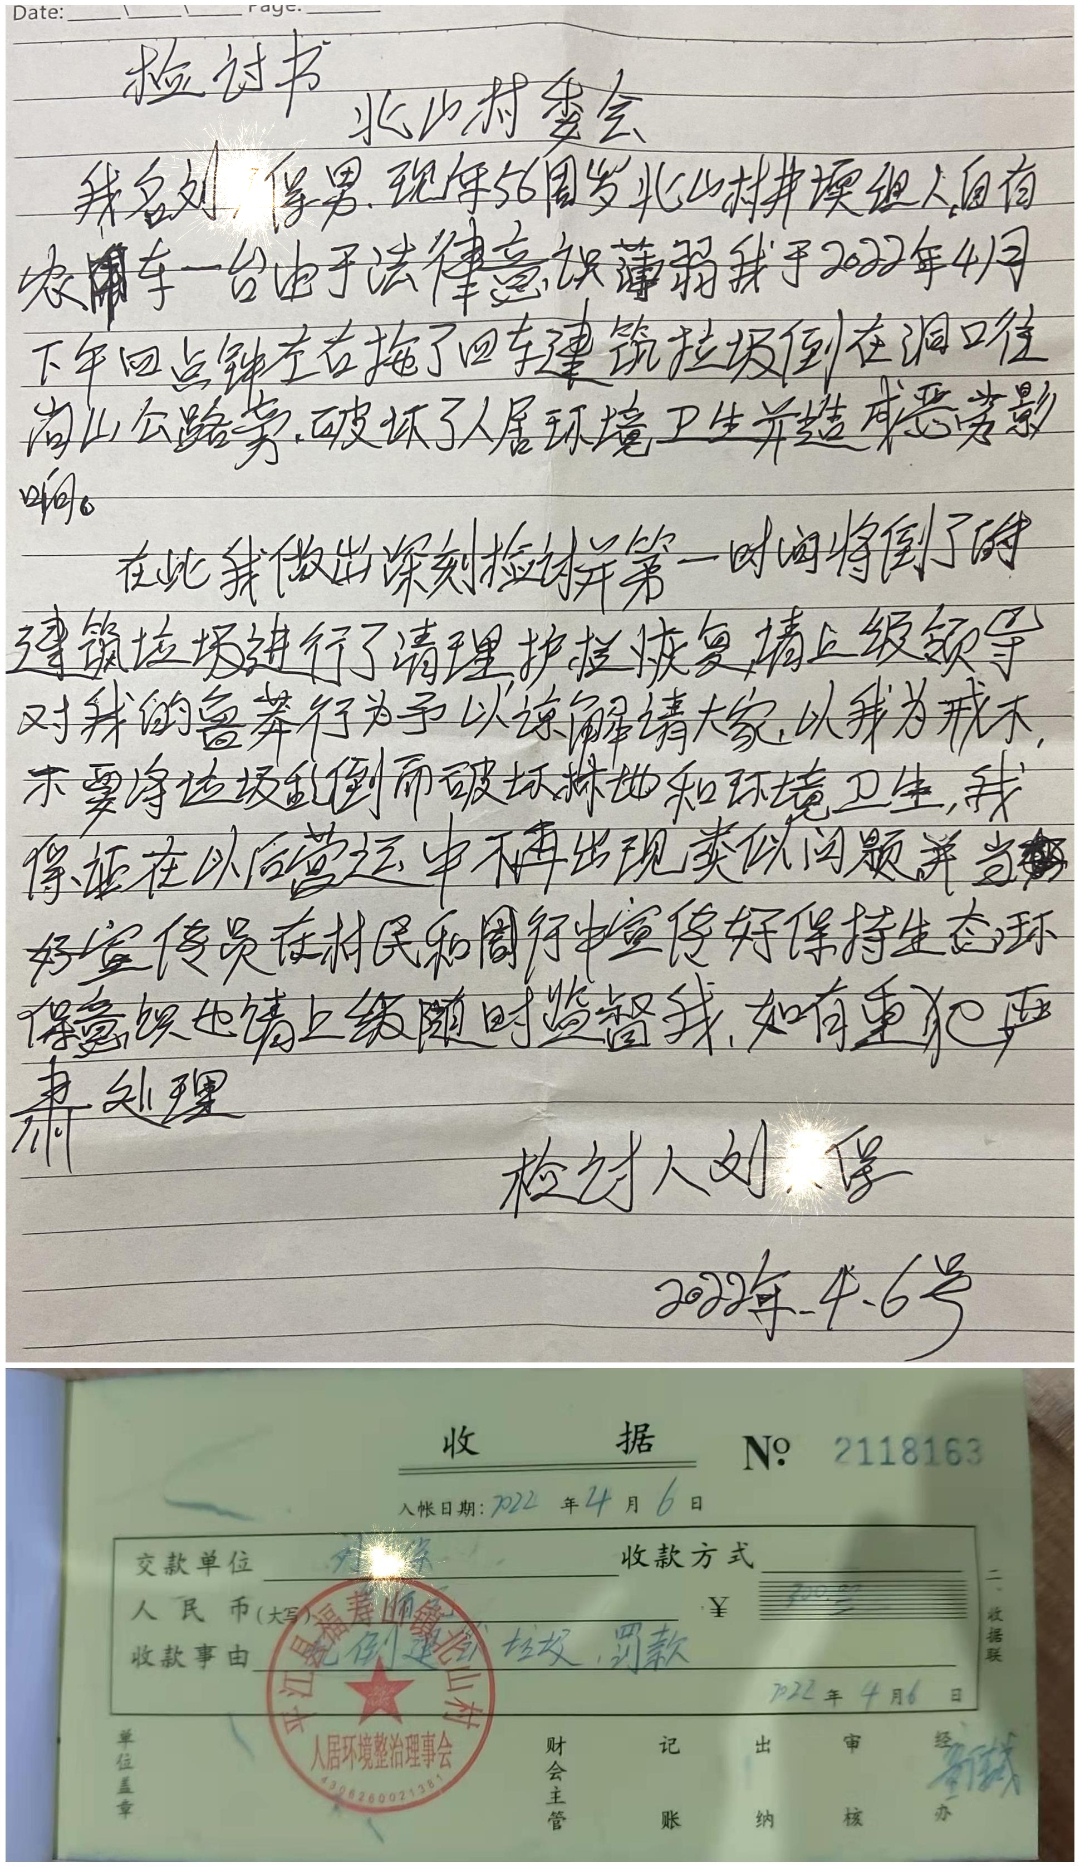 Date: Page:
检讨书
北山村委会
我名刘 保男.现年56周岁北山村井塅组人,自有
农用车一台由于法律意识薄弱我于2022年4月
下午四点钟左右拖了四车建筑垃圾倒在洞口往
尚山公路旁.破坏了人居环境卫生并造成恶劣影
响。
在此我做出深刻检讨并第一时间将倒了的
建筑垃圾进行了清理护栏恢复,请上级领导
对我的鲁莽行为予以谅解请大家,以我为戒不,
不要将垃圾乱倒而破坏林地和环境卫生,我
保证在以后营运中不再出现类似问题并当
好宣传员在村民和同行中宣传好保持生态环
保意识也请上级随时监督我,如有重犯严
肃处理
检讨人刘 保
2022年.4.6号
收据 No 2118163
入帐日期:2022年4月6日
交款单位 刘 保 收款方式
人民币(大写) ¥
收款事由 乱倒建筑垃圾,罚款
2022年4月6日
二、收据联
平江县福寿山镇北山村
人居环境整治理事会
4306260021381
单位盖章 财会主管 记账 出纳 审核 经办